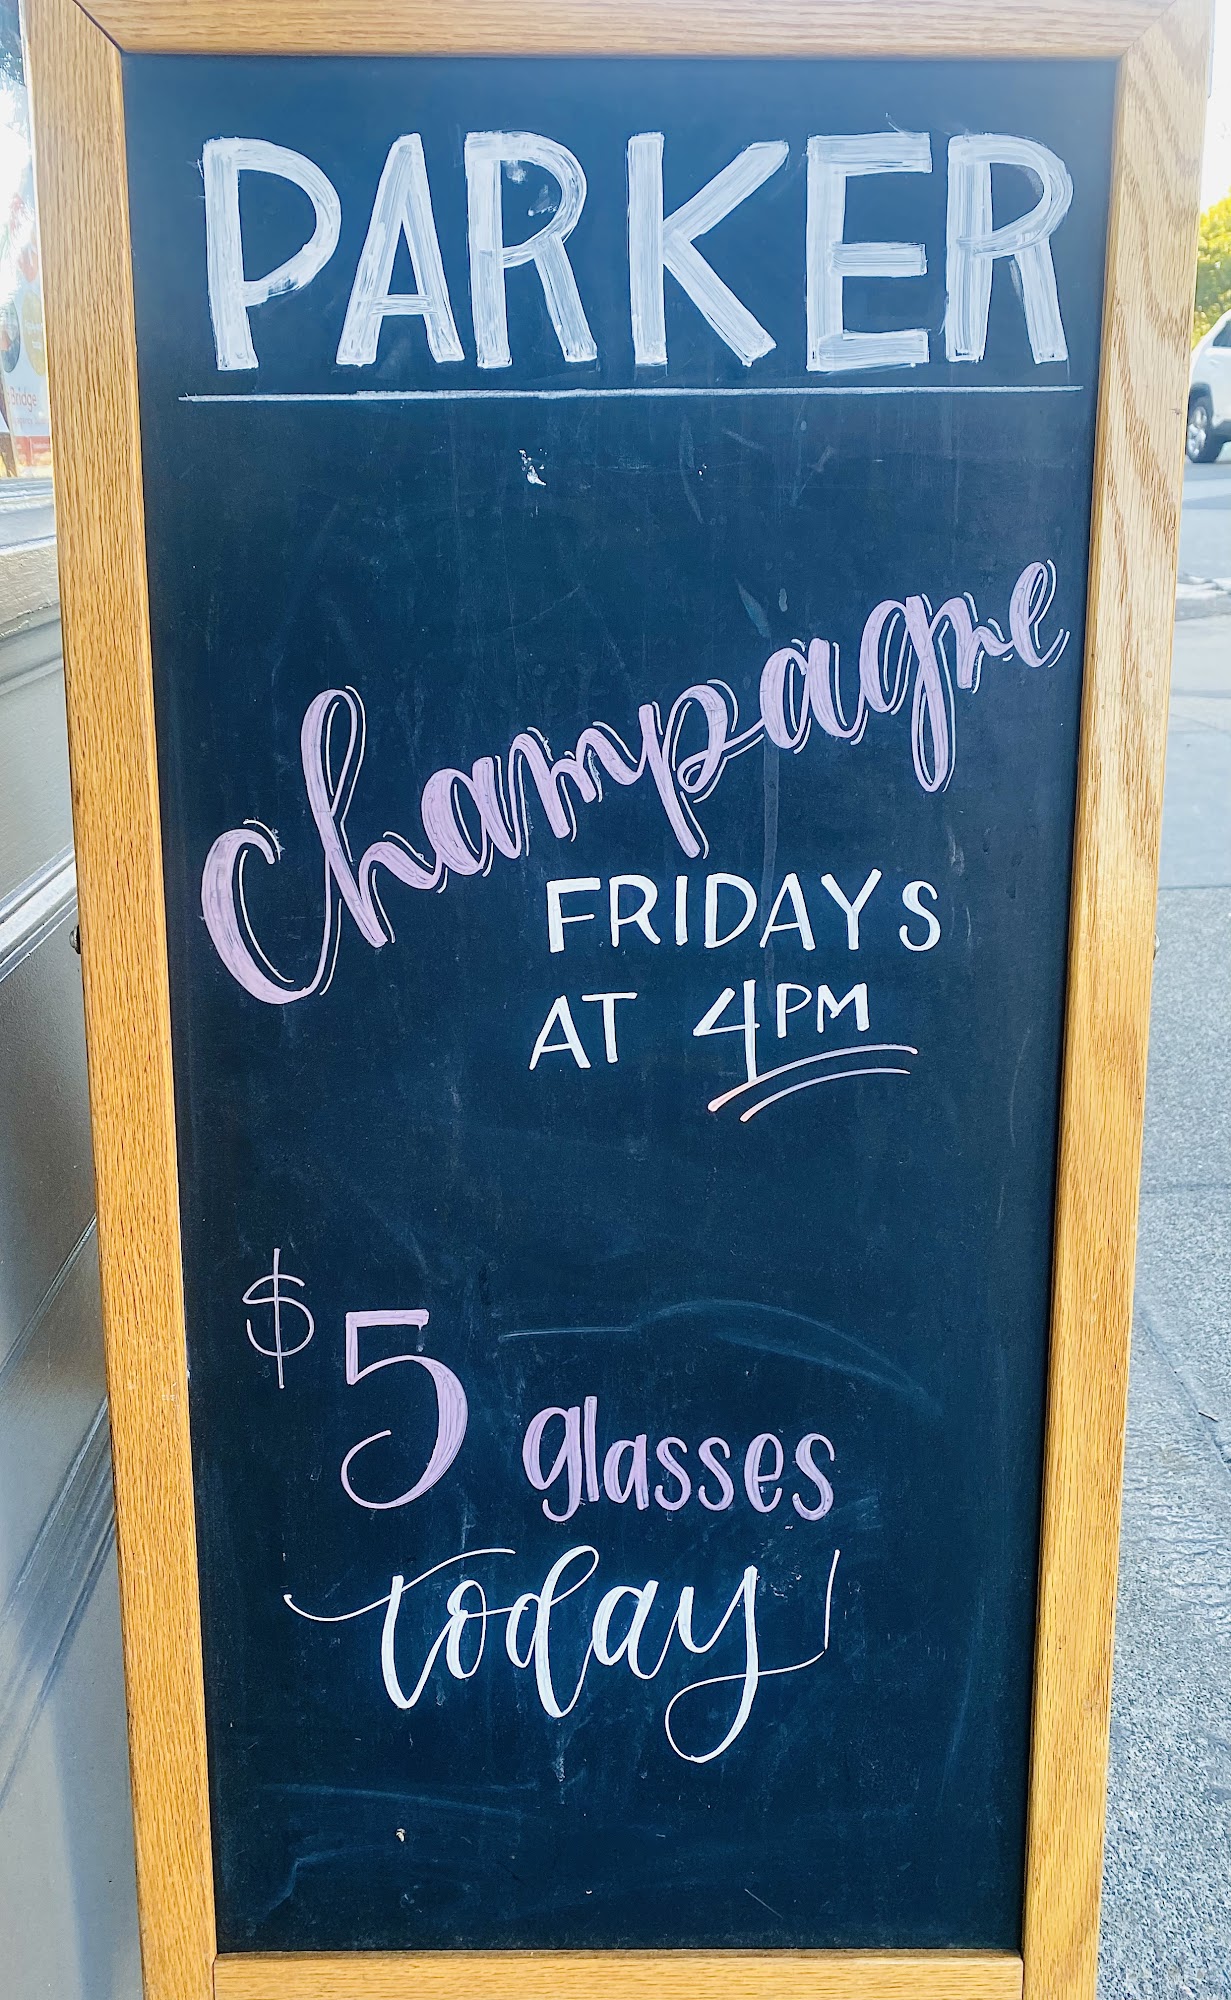 PARKER
Champagne
FRIDAYS
AT 4PM
$5 glasses
today!